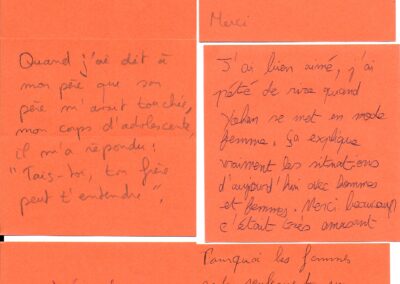 Merci
Quand j'ai dit à
mon père que son
père m'avait touchée,
mon corps d'adolescente,
il m'a répondu :
"Tais-toi, ton frère
peut t'entendre".
J'ai bien aimé, j'ai
pété de rire quand
se met en mode
femme. Ça explique
vraiment les situations
d'aujourd'hui avec hommes
et femmes. Merci beaucoup
c'était très amusant
Pourquoi les femmes